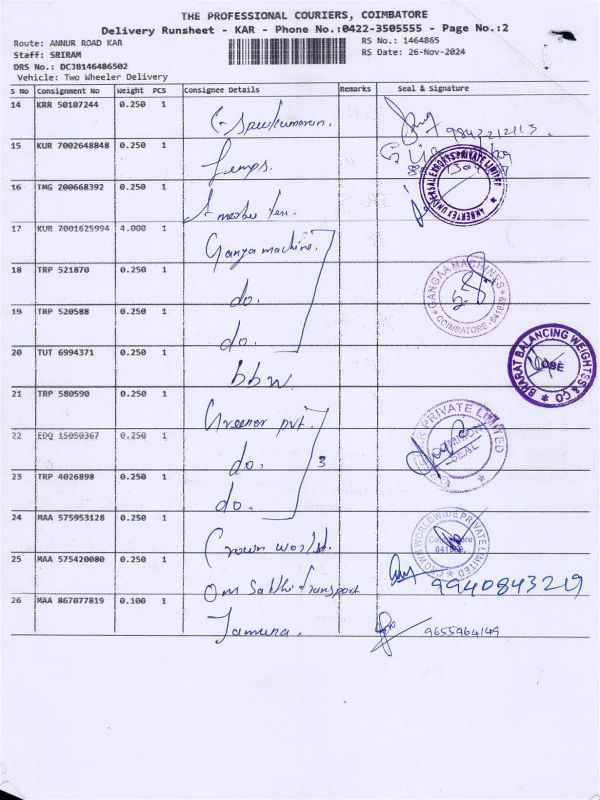 THE PROFESSIONAL COURIERS, COIMBATORE
Delivery Runsheet - KAR - Phone No.:0422-3505555 - Page No.:2
Route: ANNUR ROAD KAR RS No.: 1464865
Staff: SRIRAM RS Date: 26-Nov-2024
DRS No.: DCJB146486502
Vehicle: Two Wheeler Delivery
S No Consignment No Weight PCS Consignee Details Remarks Seal & Signature
14 KRR 50107244 0.250 1
9843212113.
15 KUR 7002648848 0.250 1
16 TMG 200668392 0.250 1
UNIVERSAL EXPORTS PRIVATE LIMITED
17 KUR 7001625994 4.000 1 Ganga machine.
18 TRP 521870 0.250 1 do.
GANGAA MACHINES
COIMBATORE
19 TRP 520588 0.250 1 do.
20 TUT 6994371 0.250 1 bbw
BHARAT BALANCING WEIGHTSS & CO
21 TRP 580590 0.250 1 Greener pvt.
PRIVATE LIMITED
SEAL
22 EDQ 15050367 0.250 1 do. 3
23 TRP 4026898 0.250 1 do.
24 MAA 575953128 0.250 1 Crown world.
CROWN WORLDWIDE PRIVATE LIMITED
25 MAA 575420080 0.250 1 Om Sakthi transport
9940843219
26 MAA 867077819 0.100 1 Jamuna.
9655964149